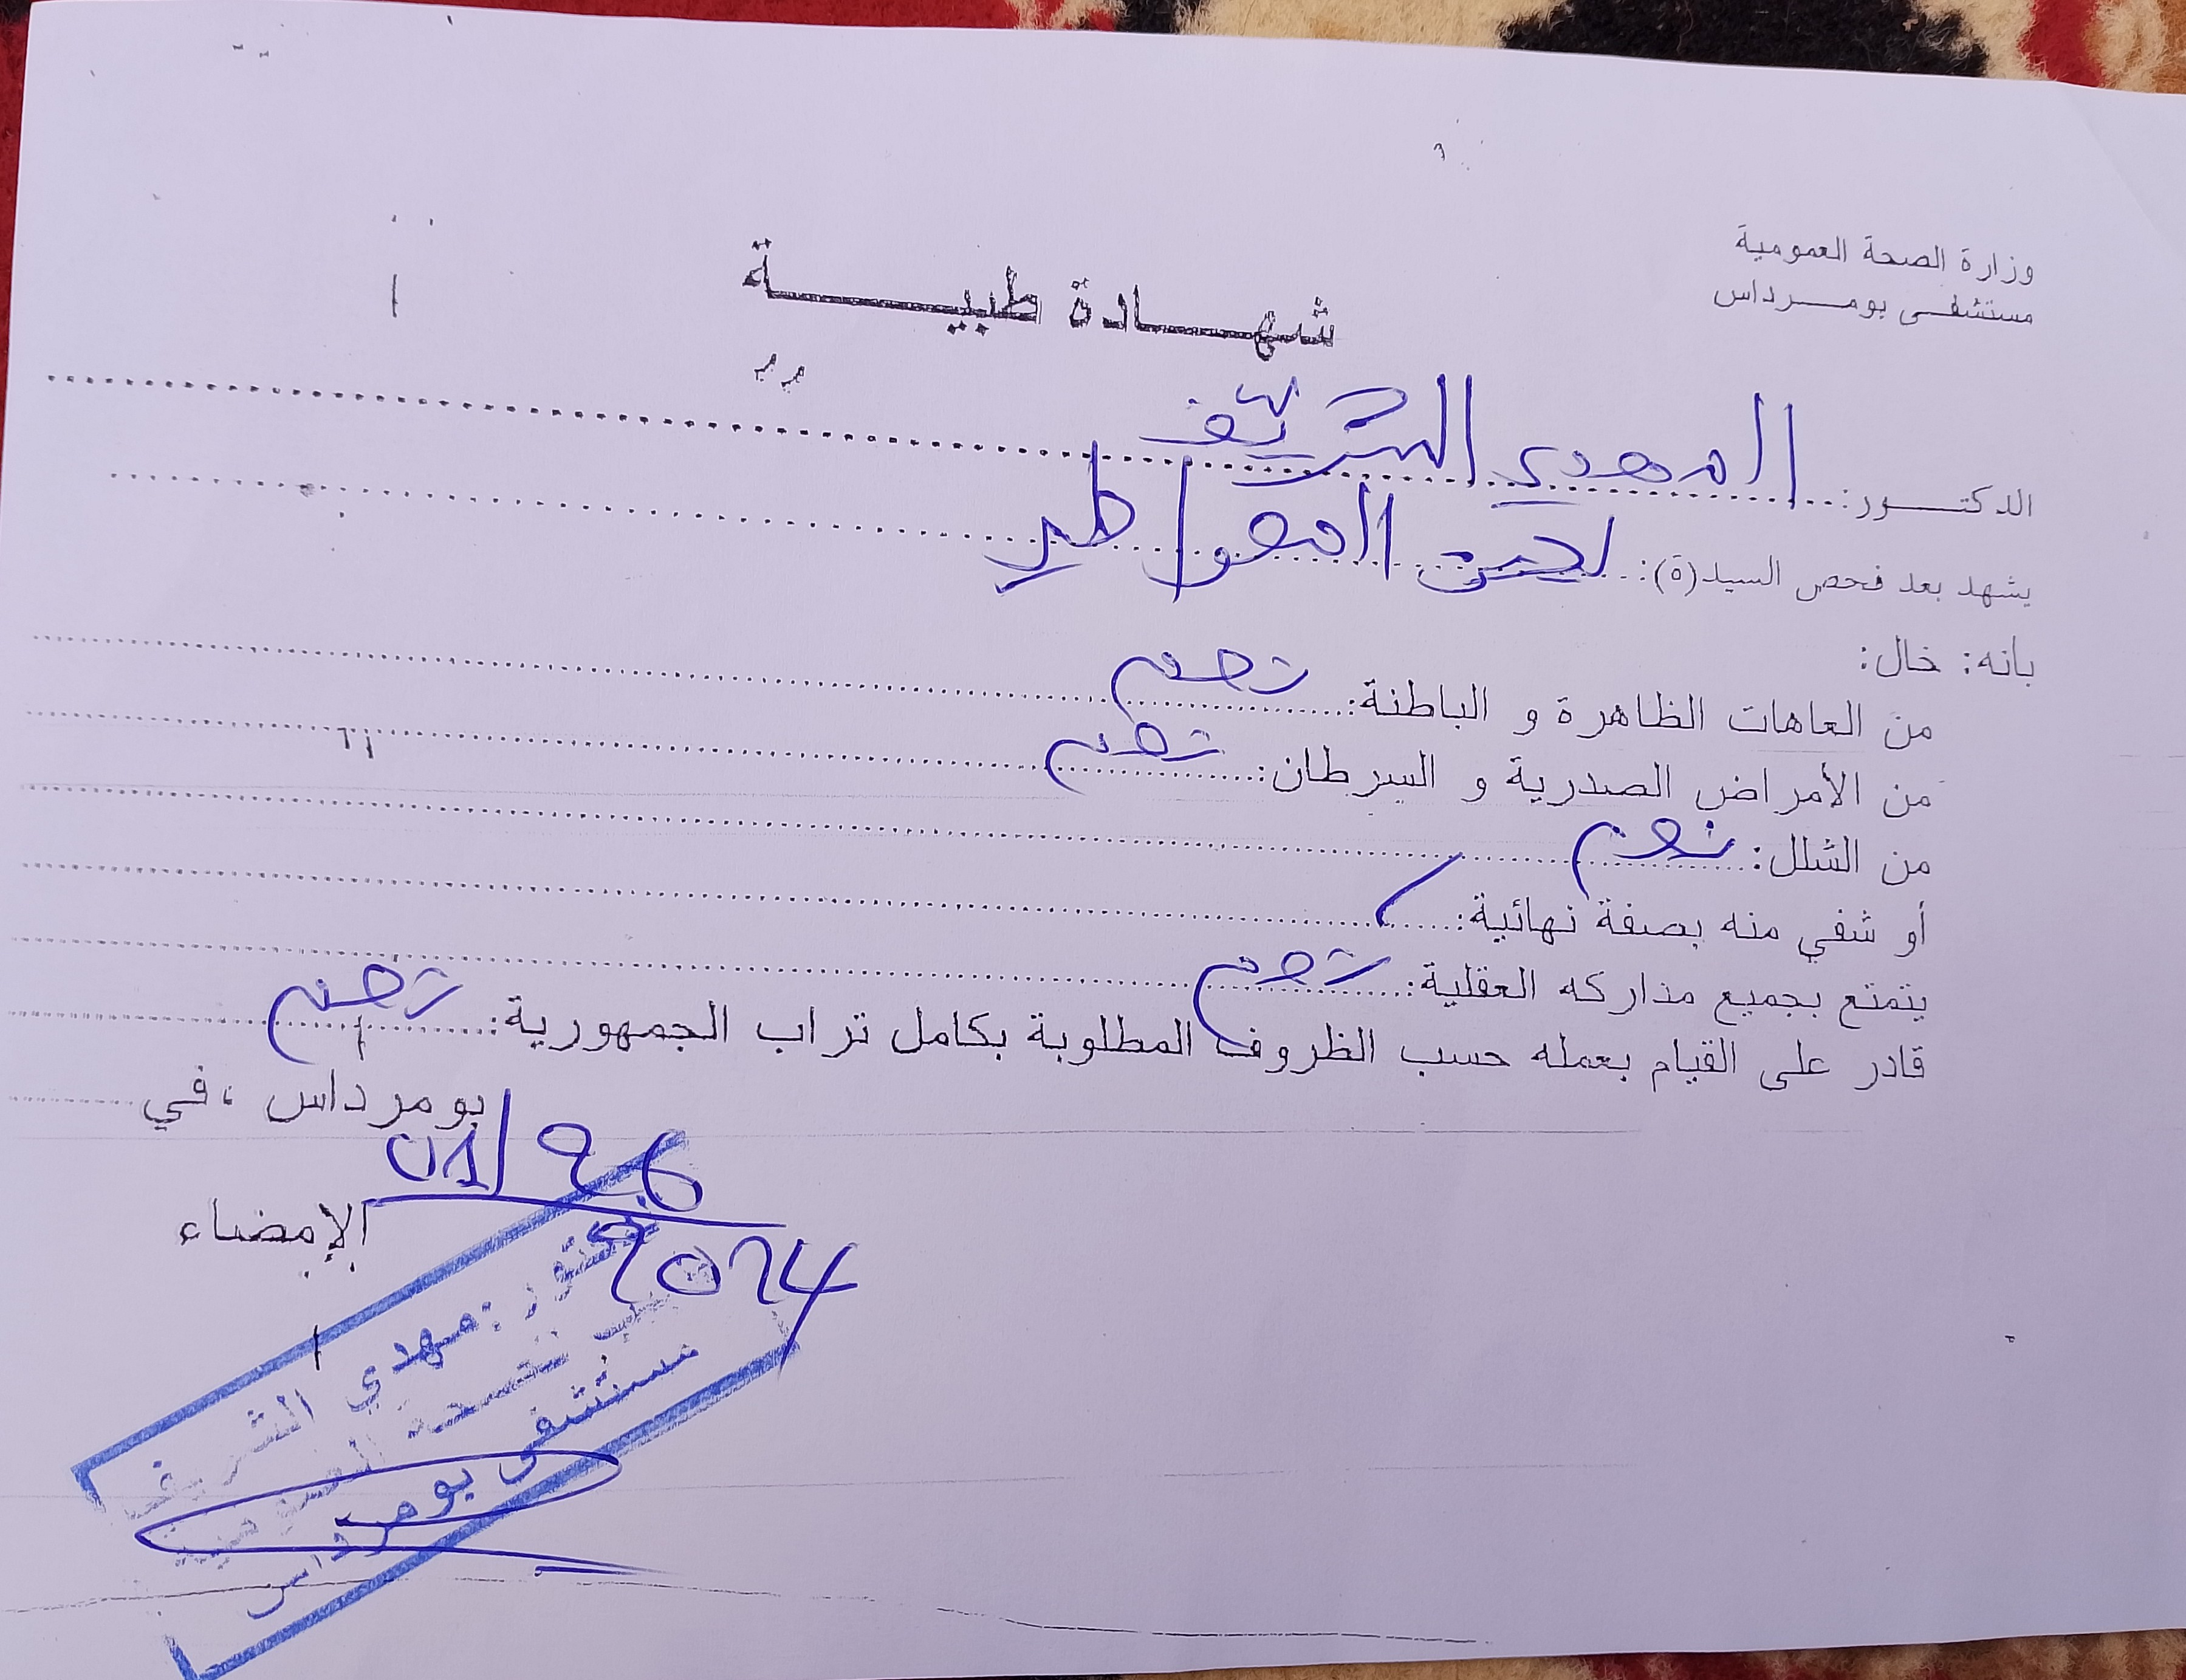 وزارة الصحة العمومية
مستشفى بومرداس
شهادة طبية
الدكتور: المهدي الشريف
يشهد بعد فحص السيد(ة): لحسن
بانه: خال:
من العاهات الظاهرة و الباطنة: نعم
من الأمراض الصدرية و السرطان: نعم
من الشلل: نعم
أو شفي منه بصفة نهائية: /
يتمتع بجميع مداركه العقلية: نعم
قادر على القيام بعمله حسب الظروف المطلوبة بكامل تراب الجمهورية: نعم
بومرداس ،في
01/26
2024
الإمضاء
مهدي الشريف
الصحة العمومية
مستشفى بومرداس